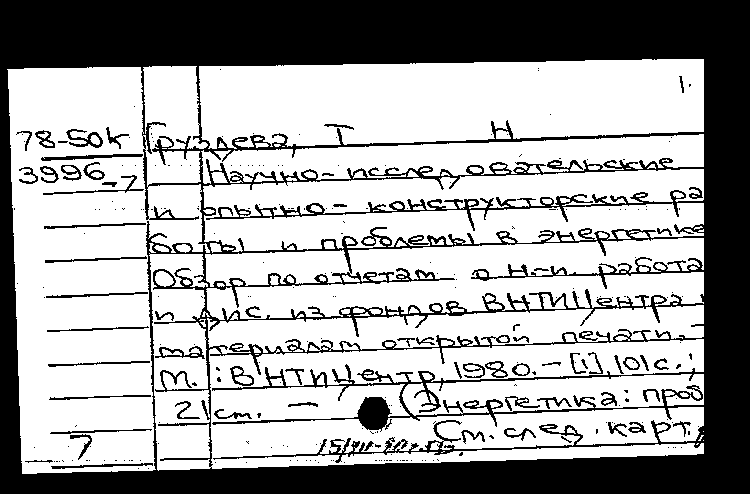 1.
78-50к Груздева, Т Н
3996-7 Научно-исследовательские
и опытно-конструкторские ра
боты и проблемы в энергетике
Обзор по отчетам о н.-и. работа
и дис. из фондов ВНТИЦентра и
материалам открытой печати. -
М. : ВНТИЦентр, 1980. - [1], 101 с. ;
21 см. - (Энергетика: проб
См. след. карт.
7